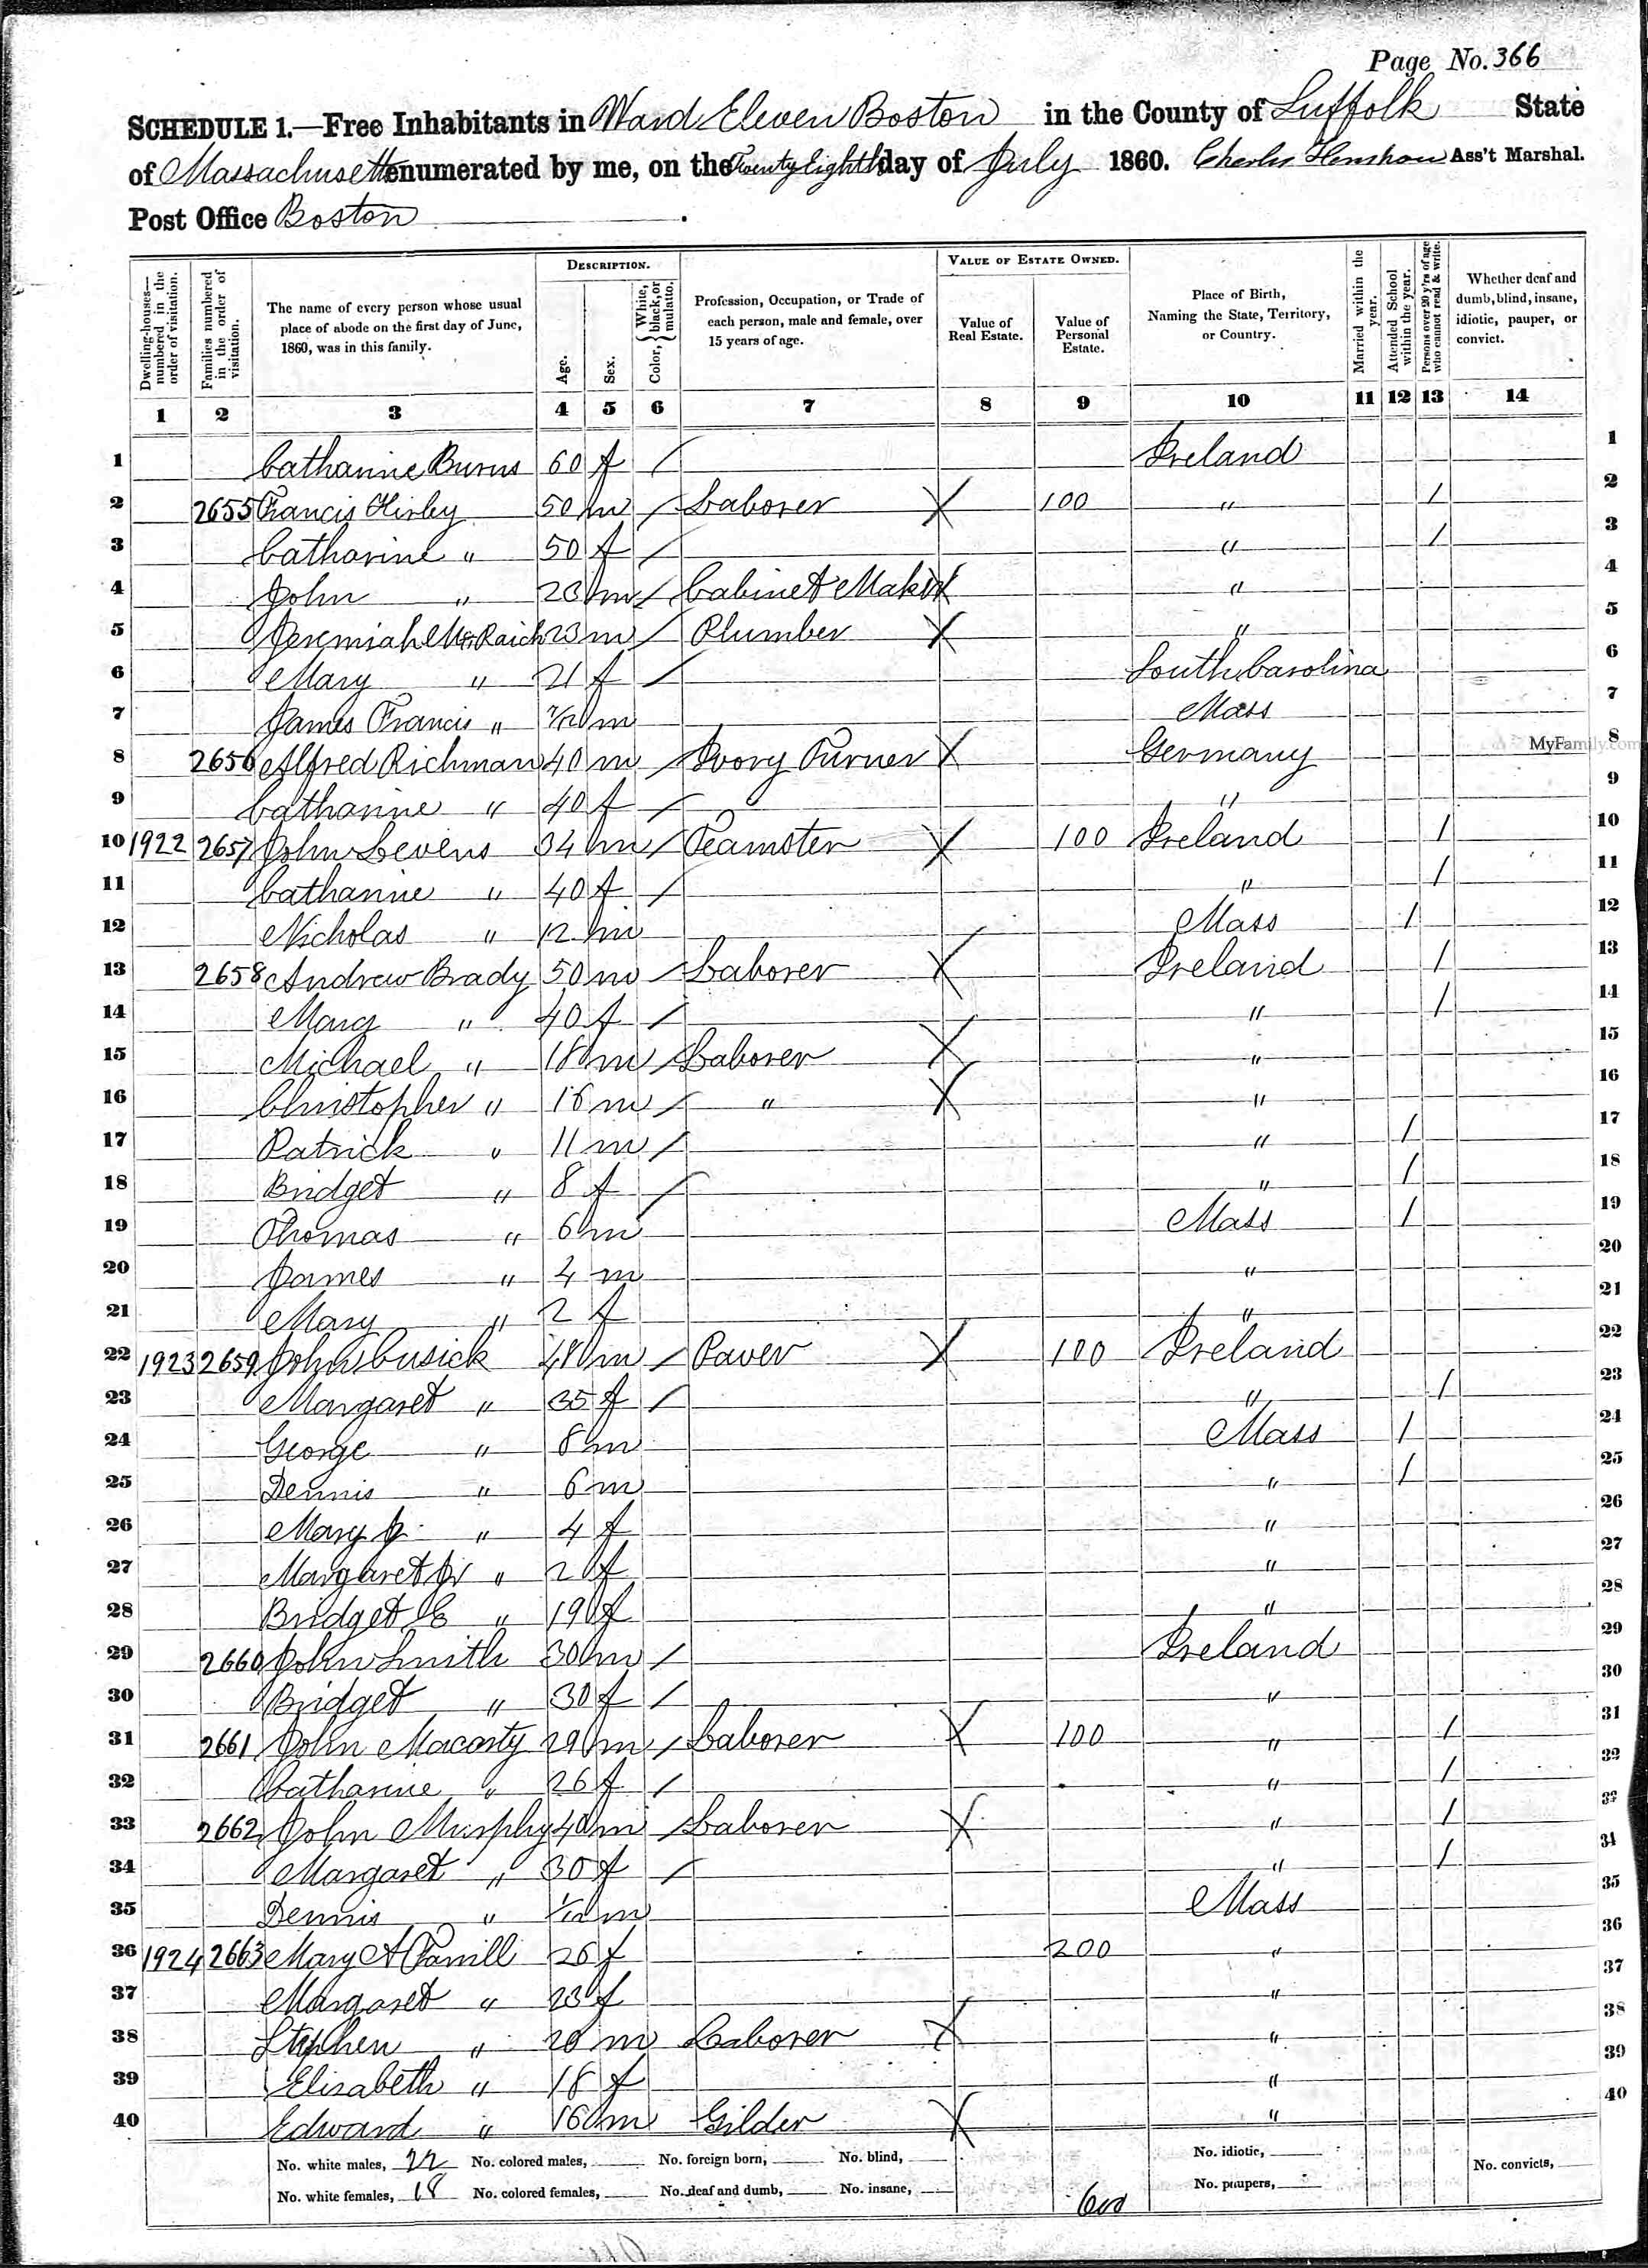 Page No. 366
SCHEDULE 1.—Free Inhabitants in Ward Eleven Boston in the County of Suffolk State
of Massachusetts enumerated by me, on the Twenty Eighth day of July 1860. Charles Henshaw Ass't Marshal.
Post Office Boston
Dwelling-houses—numbered in the order of visitation.
Families numbered in the order of visitation.
The name of every person whose usual place of abode on the first day of June, 1860, was in this family.
DESCRIPTION.
Age.
Sex.
Color, { White, black, or mulatto.
Profession, Occupation, or Trade of each person, male and female, over 15 years of age.
VALUE OF ESTATE OWNED.
Value of Real Estate.
Value of Personal Estate.
Place of Birth, Naming the State, Territory, or Country.
Married within the year.
Attended School within the year.
Persons over 20 y'rs of age who cannot read & write.
Whether deaf and dumb, blind, insane, idiotic, pauper, or convict.
1 2 3 4 5 6 7 8 9 10 11 12 13 14
1 Catharine Burns 60 f / Ireland 1
2 2655 Francis Kirby 50 m / Laborer X 100 " / 2
3 Catharine " 50 f / " / 3
4 John " 23 m / Cabinet Maker X " 4
5 Jeremiah 23 m / Plumber X " 5
6 Mary " 21 f / South Carolina 6
7 James Francis " 7/12 m Mass 7
8 2656 Alfred Richman 40 m / Ivory Turner X Germany 8
MyFamily.com
9 Catharine " 40 f / " 9
10 1922 2657 John Levens 34 m / Teamster X 100 Ireland / 10
11 Catharine " 40 f / " / 11
12 Nicholas " 12 m Mass / 12
13 2658 Andrew Brady 50 m / Laborer X Ireland / 13
14 Mary " 40 f / " / 14
15 Michael " 18 m / Laborer X " 15
16 Christopher " 16 m / " X " 16
17 Patrick " 11 m / " / 17
18 Bridget " 8 f / " / 18
19 Thomas " 6 m Mass / 19
20 James " 4 m " 20
21 Mary " 2 f " 21
22 1923 2659 John Cusick 48 m / Paver X 100 Ireland 22
23 Margaret " 35 f / " / 23
24 George " 8 m Mass / 24
25 Dennis " 6 m " / 25
26 Mary J " 4 f " 26
27 Margaret Jr " 2 f " 27
28 Bridget E " 19 f " 28
29 2660 John Smith 30 m / Ireland 29
30 Bridget " 30 f / " 30
31 2661 John Macarty 29 m / Laborer X 100 " / 31
32 Catharine " 26 f / " / 32
33 2662 John Murphy 40 m / Laborer X " / 33
34 Margaret " 30 f / " / 34
35 Dennis " 1/12 m Mass 35
36 1924 2663 Mary A 26 f 200 " 36
37 Margaret " 23 f " 37
38 Stephen " 20 m Laborer X " 38
39 Elisabeth " 18 f " 39
40 Edward " 16 m Gilder X " 40
No. white males, 22 No. colored males, No. foreign born, No. blind, No. idiotic, No. convicts,
No. white females, 18 No. colored females, No. deaf and dumb, No. insane, 600 No. paupers,